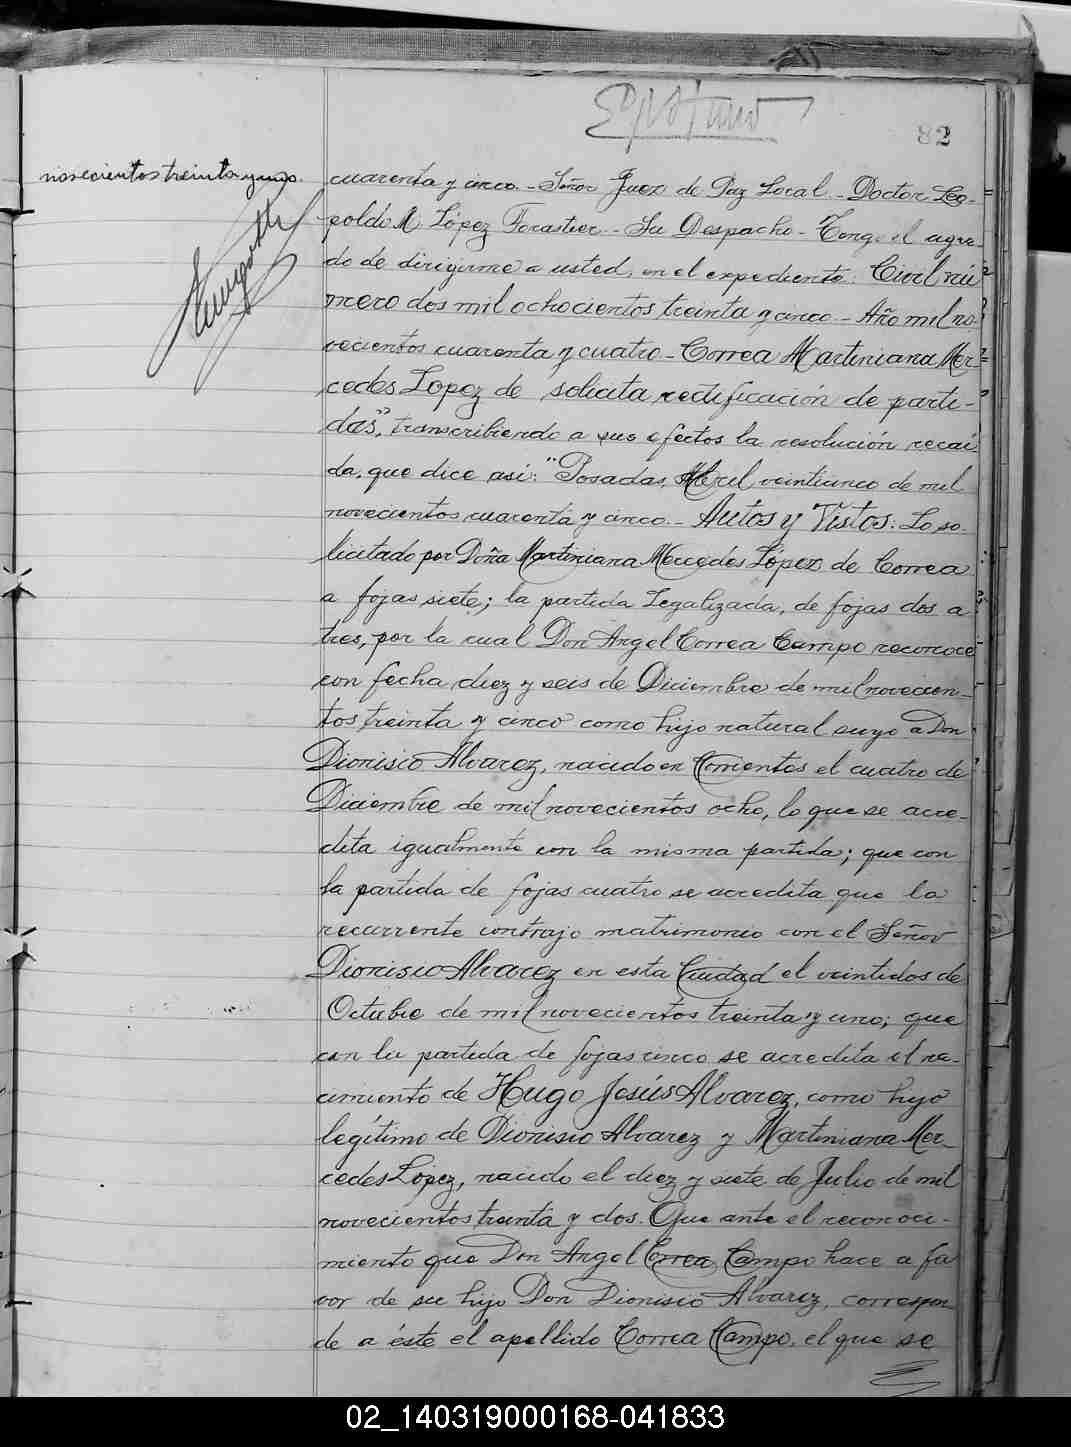 82
novecientos treinta y uno.
cuarenta y cinco.- Señor Juez de Paz Local.- Doctor Leo-
poldo M López Forastier.- Su Despacho.- Tengo el agra-
do de dirigirme a usted, en el expediente: Civil nú
mero dos mil ochocientos treinta y cinco.- Año mil no-
vecientos cuarenta y cuatro.- Correa Martiniana Mer-
cedes Lopez de solicita rectificación de parti-
das", transcribiendo a sus efectos la resolución recaí
da, que dice así: "Posadas, Abril veinticinco de mil
novecientos cuarenta y cinco.- Autos y Vistos: Lo so-
licitado por Doña Martiniana Mercedes López de Correa
a fojas siete; la partida Legalizada, de fojas dos a
tres, por la cual Don Angel Correa Campo reconoce
con fecha diez y seis de Diciembre de mil novecien-
tos treinta y cinco como hijo natural suyo a Don
Dionisio Alvarez, nacido en Corrientes el cuatro de
Diciembre de mil novecientos ocho, lo que se acre-
dita igualmente con la misma partida; que con
la partida de fojas cuatro se acredita que la
recurrente contrajo matrimonio con el Señor
Dionisio Alvarez en esta Ciudad el veintidos de
Octubre de mil novecientos treinta y uno; que
con la partida de fojas cinco se acredita el na-
cimiento de Hugo Jesús Alvarez, como hijo
legítimo de Dionisio Alvarez y Martiniana Mer-
cedes López, nacido el diez y siete de Julio de mil
novecientos treinta y dos. Que ante el reconoci-
miento que Don Angel Correa Campo hace a fa
vor de su hijo Don Dionisio Alvarez, correspon
de a éste el apellido Correa Campo, el que se
02_140319000168-041833